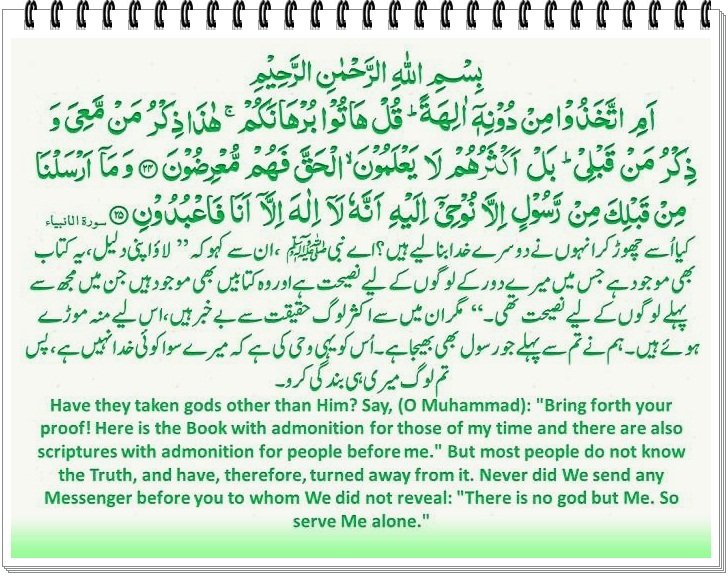 بِسْمِ اللهِ الرَّحْمٰنِ الرَّحِيْمِ
اَمِ اتَّخَذُوْا مِنْ دُوْنِهٖۤ اٰلِهَةً ؕ قُلْ هَاتُوْا بُرْهَانَكُمْ ۚ هٰذَا ذِكْرُ مَنْ مَّعِىَ وَ
ذِكْرُ مَنْ قَبْلِىْ ؕ بَلْ اَكْثَرُهُمْ لَا يَعْلَمُوْنَ ۙ الْحَقَّ فَهُمْ مُّعْرِضُوْنَ ﴿۲۴﴾ وَ مَاۤ اَرْسَلْنَا
مِنْ قَبْلِكَ مِنْ رَّسُوْلٍ اِلَّا نُوْحِىْۤ اِلَيْهِ اَنَّهٗ لَاۤ اِلٰهَ اِلَّاۤ اَنَا فَاعْبُدُوْنِ ﴿۲۵﴾ سورة الانبیاء
کیا اُسے چھوڑ کر انہوں نے دوسرے خدا بنا لیے ہیں؟ اے نبی ﷺ ، ان سے کہو کہ ”لاؤ اپنی دلیل، یہ کتاب
بھی موجود ہے جس میں میرے دور کے لوگوں کے لیے نصیحت ہے اور وہ کتابیں بھی موجود ہیں جن میں مجھ سے
پہلے لوگوں کے لیے نصیحت تھی۔“ مگر ان میں سے اکثر لوگ حقیقت سے بے خبر ہیں، اس لیے منہ موڑے
ہوئے ہیں۔ ہم نے تم سے پہلے جو رسول بھی بھیجا ہے۔ اُس کو یہی وحی کی ہے کہ میرے سوا کوئی خدا نہیں ہے، پس
تم لوگ میری ہی بندگی کرو۔
Have they taken gods other than Him? Say, (O Muhammad): "Bring forth your
proof! Here is the Book with admonition for those of my time and there are also
scriptures with admonition for people before me." But most people do not know
the Truth, and have, therefore, turned away from it. Never did We send any
Messenger before you to whom We did not reveal: "There is no god but Me. So
serve Me alone."